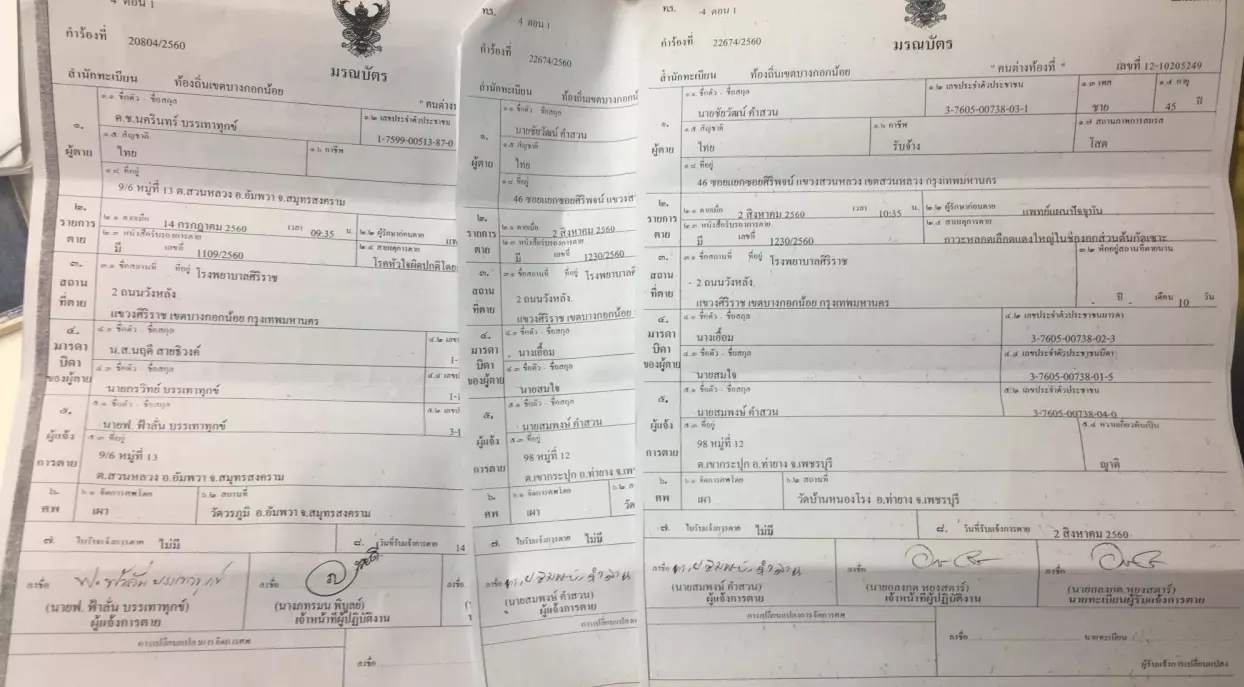 4 ตอน 1
คำร้องที่ 20804/2560
มรณบัตร
สำนักทะเบียน ท้องถิ่นเขตบางกอกน้อย
" คนต่าง
๑. ผู้ตาย
๑.๑ ชื่อตัว - ชื่อสกุล
ด.ช.นครินทร์ บรรเทาทุกข์
๑.๒ เลขประจำตัวประชาชน
1-7599-00513-87-0
๑.๕ สัญชาติ
ไทย
๑.๖ อาชีพ
๑.๘ ที่อยู่
9/6 หมู่ที่ 13 ต.สวนหลวง อ.อัมพวา จ.สมุทรสงคราม
๒. รายการตาย
๒.๑ ตายเมื่อ 14 กรกฎาคม 2560 เวลา 09:35 น.
๒.๒ ผู้รักษาก่อนตาย
แพ
๒.๓ หนังสือรับรองการตาย
มี เลขที่ 1109/2560
๒.๔ สาเหตุการตาย
โรคหัวใจผิดปกติโดย
๓. สถานที่ตาย
๓.๑ ชื่อสถานที่ ที่อยู่ โรงพยาบาลศิริราช
2 ถนนวังหลัง
แขวงศิริราช เขตบางกอกน้อย กรุงเทพมหานคร
๔. มารดา บิดา ของผู้ตาย
๔.๑ ชื่อตัว - ชื่อสกุล
น.ส.นฤดี สายธิวงค์
๔.๒ เลข
1-
๔.๓ ชื่อตัว - ชื่อสกุล
นายกรวิทย์ บรรเทาทุกข์
๔.๔ เลขป
1-1
๕. ผู้แจ้งการตาย
๕.๑ ชื่อตัว - ชื่อสกุล
นายฟ. ฟ้าลั่น บรรเทาทุกข์
๕.๒ เลขป
3-1
๕.๓ ที่อยู่
9/6 หมู่ที่ 13
ต.สวนหลวง อ.อัมพวา จ.สมุทรสงคราม
๖. ศพ
๖.๑ จัดการศพโดย
เผา
๖.๒ สถานที่
วัดวรภูมิ อ.อัมพวา จ.สมุทรสงคราม
๗. ใบรับแจ้งการตาย ไม่มี
๘. วันที่รับแจ้งการตาย 14
ลงชื่อ
(นายฟ. ฟ้าลั่น บรรเทาทุกข์)
ผู้แจ้งการตาย
ลงชื่อ
(นางภทรมน พิบูลย์)
เจ้าหน้าที่ผู้ปฏิบัติงาน
ลงชื่อ
การเปลี่ยนแปลงการจัดการศพ
ลงชื่อ
ทร. 4 ตอน 1
คำร้องที่ 22674/2560
สำนักทะเบียน ท้องถิ่นเขตบางกอกน้อย
๑. ผู้ตาย
๑.๑ ชื่อตัว - ชื่อสกุล
นายชัยวัฒน์ คำสวน
๑.๕ สัญชาติ
ไทย
๑.๘ ที่อยู่
46 ซอยแยกซอยศิริพจน์ แขวงส
๒. รายการตาย
๒.๑ ตายเมื่อ 2 สิงหาคม 2560
๒.๓ หนังสือรับรองการตาย
มี เลขที่ 1230/2560
๓. สถานที่ตาย
๓.๑ ชื่อสถานที่ ที่อยู่ โรงพยาบาลศิ
2 ถนนวังหลัง
แขวงศิริราช เขตบางกอกน้อย
๔. มารดา บิดา ของผู้ตาย
๔.๑ ชื่อตัว - ชื่อสกุล
นางเอื้อม
๔.๓ ชื่อตัว - ชื่อสกุล
นายสมใจ
๕. ผู้แจ้งการตาย
๕.๑ ชื่อตัว - ชื่อสกุล
นายสมพงษ์ คำสวน
๕.๓ ที่อยู่
98 หมู่ที่ 12
ต.เขากระปุก อ.ท่ายาง จ.เพ
๖. ศพ
๖.๑ จัดการศพโดย
เผา
๖.๒ ส
วัด
๗. ใบรับแจ้งการตาย ไม่มี
ลงชื่อ นายสมพงษ์ คำสวน
(นายสมพงษ์ คำสวน)
ผู้แจ้งการตาย
ทร. 4 ตอน 1
คำร้องที่ 22674/2560
มรณบัตร
สำนักทะเบียน ท้องถิ่นเขตบางกอกน้อย
" คนต่างท้องที่ " เลขที่ 12-10205249
๑. ผู้ตาย
๑.๑ ชื่อตัว - ชื่อสกุล
นายชัยวัฒน์ คำสวน
๑.๒ เลขประจำตัวประชาชน
3-7605-00738-03-1
๑.๓ เพศ
ชาย
๑.๔ อายุ
45 ปี
๑.๕ สัญชาติ
ไทย
๑.๖ อาชีพ
รับจ้าง
๑.๗ สถานภาพการสมรส
โสด
๑.๘ ที่อยู่
46 ซอยแยกซอยศิริพจน์ แขวงสวนหลวง เขตสวนหลวง กรุงเทพมหานคร
๒. รายการตาย
๒.๑ ตายเมื่อ 2 สิงหาคม 2560 เวลา 10:35 น.
๒.๒ ผู้รักษาก่อนตาย
แพทย์แผนปัจจุบัน
๒.๓ หนังสือรับรองการตาย
มี เลขที่ 1230/2560
๒.๔ สาเหตุการตาย
ภาวะหลอดเลือดแดงใหญ่ในช่องอกส่วนต้นกัดเซาะ
๓. สถานที่ตาย
๓.๑ ชื่อสถานที่ ที่อยู่ โรงพยาบาลศิริราช
2 ถนนวังหลัง
แขวงศิริราช เขตบางกอกน้อย กรุงเทพมหานคร
๓.๒ พักอยู่สถานที่ตายนาน
- ปี - เดือน 10 วัน
๔. มารดา บิดา ของผู้ตาย
๔.๑ ชื่อตัว - ชื่อสกุล
นางเอื้อม
๔.๒ เลขประจำตัวประชาชนมารดา
3-7605-00738-02-3
๔.๓ ชื่อตัว - ชื่อสกุล
นายสมใจ
๔.๔ เลขประจำตัวประชาชนบิดา
3-7605-00738-01-5
๕. ผู้แจ้งการตาย
๕.๑ ชื่อตัว - ชื่อสกุล
นายสมพงษ์ คำสวน
๕.๒ เลขประจำตัวประชาชน
3-7605-00738-04-0
๕.๓ ที่อยู่
98 หมู่ที่ 12
ต.เขากระปุก อ.ท่ายาง จ.เพชรบุรี
๕.๔ ความเกี่ยวพันเป็น
ญาติ
๖. ศพ
๖.๑ จัดการศพโดย
เผา
๖.๒ สถานที่
วัดบ้านหนองโรง อ.ท่ายาง จ.เพชรบุรี
๗. ใบรับแจ้งการตาย ไม่มี
๘. วันที่รับแจ้งการตาย 2 สิงหาคม 2560
ลงชื่อ นายสมพงษ์ คำสวน
(นายสมพงษ์ คำสวน)
ผู้แจ้งการตาย
ลงชื่อ
เจ้าหน้าที่ผู้ปฏิบัติงาน
ลงชื่อ
นายทะเบียนผู้รับแจ้งการตาย
การเปลี่ยนแปลงการจัดการศพ
ลงชื่อ นายทะเบียน
ผู้รับแจ้งการเปลี่ยนแปลง